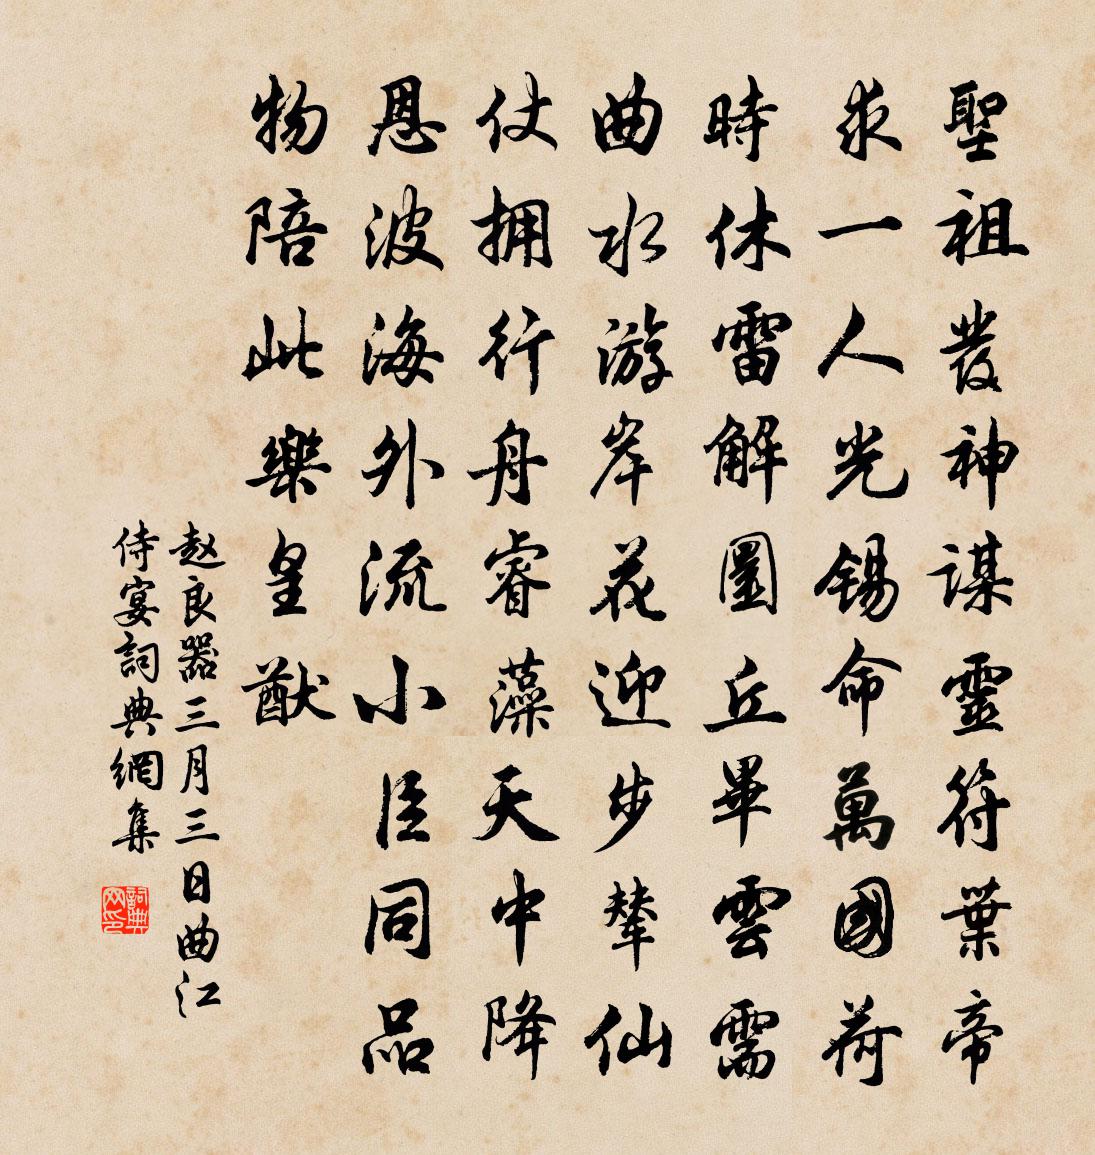 聖祖發神謀靈符葉帝
求一人光錫命萬國荷
時休雷解圜丘畢雲需
曲水游岸花迎步輦仙
仗拥行舟睿藻天中降
恩波海外流小臣同品
物陪此樂皇猷
赵良器三月三日曲江
侍宴詞典網集
詞典网印